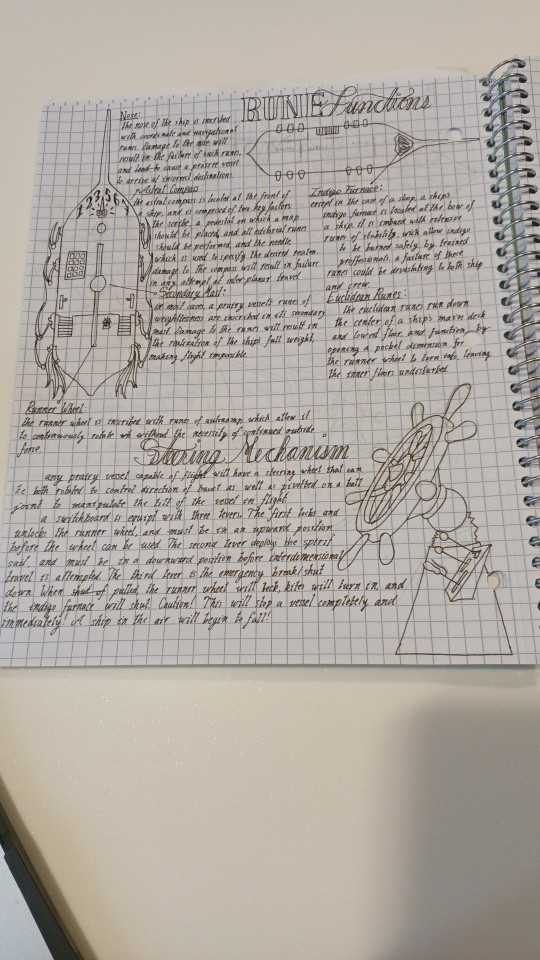 RUNE Functions
Nose:
the nose of the ship is inscribed
with coordinate and navigational
runes. Damage to the nose will
result in the failure of such runes,
and cause a prairie vessel
to arrive at incorrect destinations.
Astral Compass
the astral compass is located at the front of
a ship, and is comprised of two key factors.
the scribe, a pedestal on which a map
should be placed, and all editorial runes
should be performed, and the needle,
which is used to specify the desired realm.
damage to the compass will result in failure
in any attempt at inter planar travel
Secondary Mast:
in most cases, a prairy vessels runes of
weightlessness are inscribed in its secondary
mast. Damage to the runes will result in
the realization of the ship's full weight,
making flight impossible.
Indigo Furnace:
except in the case of a sloop, a ship's
indigo furnace is located at the bow of
a ship. it is imbued with extensive
runes of stability, wich allow indigo
to be burned safely by trained
proffesionals. a failure of these
runes could be devastating to both ship
and crew.
Euclidean Runes:
the euclidean runes run down
the center of a ship's main deck
and lowest floor, and function by
opening a pocket dimension for
the runner wheel to turn into, leaving
the inner floors undisturbed.
Runner Wheel:
the runner wheel is inscribed with runes of autonomy, which allow it
to continuously rotate without the necessity of continued outside
force.
Steering Mechanism
any prairy vessel capable of flight will have a steering wheel that can
be both rotated to control direction of travel as well as pivoted on a ball
joint to manipulate the tilt of the vessel in flight.
a switchboard is equipt with three levers. The first locks and
unlocks the runner wheel, and must be in an upward position
before the wheel can be used. The second lever deploys the spirit
sail, and must be in a downward position before interdimensional
travel is attempted. The third lever is the emergency break/shut
down. When pulled, the runner wheel will lock, kites will turn in, and
the indigo furnace will shut. Caution! This will stop a vessel completely and
immediately! A ship in the air will begin to fall!